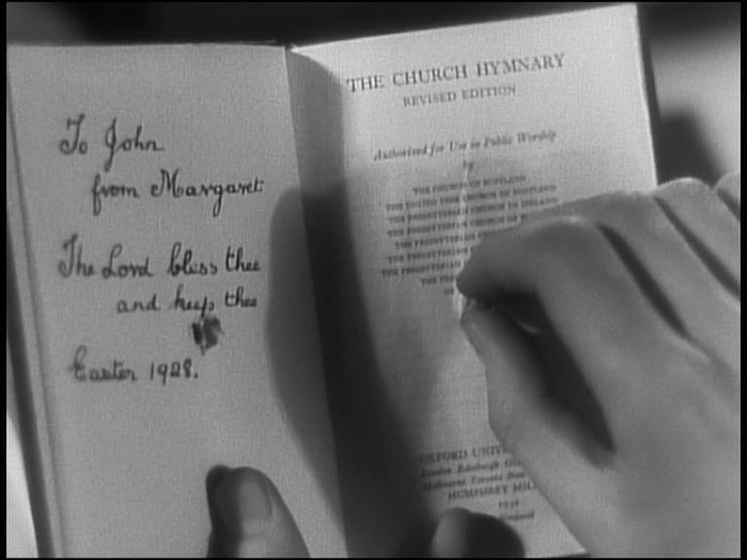 To John
from Margaret
The Lord bless thee
and keep thee
Easter 1928.
THE CHURCH HYMNARY
REVISED EDITION
Authorized for Use in Public Worship
by
THE CHURCH OF SCOTLAND
THE UNITED FREE CHURCH OF SCOTLAND
THE PRESBYTERIAN CHURCH IN IRELAND
THE PRESBYTERIAN CHURCH OF
THE PRESBYTERIAN
THE PRESBYTERIAN
THE PRESBYTERIAN
THE
OXFORD
London Edinburgh
Melbourne Toronto
HUMPHREY